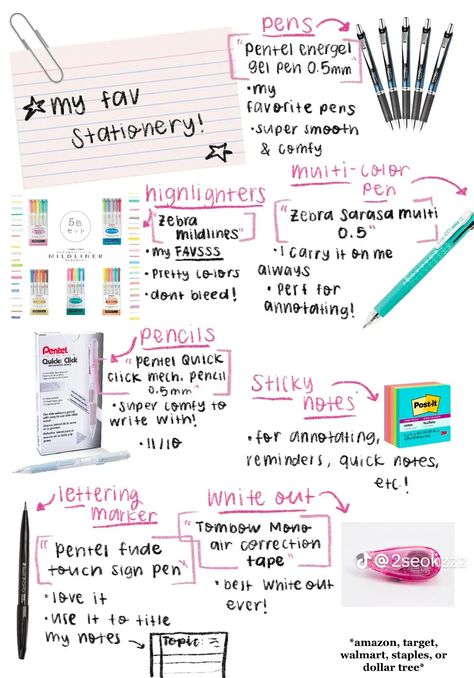 my fav
stationery!
pens
"Pentel Energel
gel pen 0.5mm"
•my
favorite pens
•super smooth
& comfy
highlighters
"Zebra
mildlines"
•my FAVSSS
•Pretty colors
•dont bleed!
5色
セット
MILDLINER
multi-color
pen
"Zebra Sarasa multi
0.5"
•I carry it on me
always
•Perf for
annotating!
pencils
"Pentel Quick
click mech. pencil
0.5mm"
•super comfy to
write with!
•11/10
Pentel
Quick Click
sticky
notes
•for annotating,
reminders, quick notes,
etc!
Post-it
lettering
marker
"Pentel fude
touch sign pen"
•love it
•use it to title
my notes
Topic:
white out
"Tombow Mono
air correction
tape"
•best white out
ever!
@2seokzzz
*amazon, target,
walmart, staples, or
dollar tree*